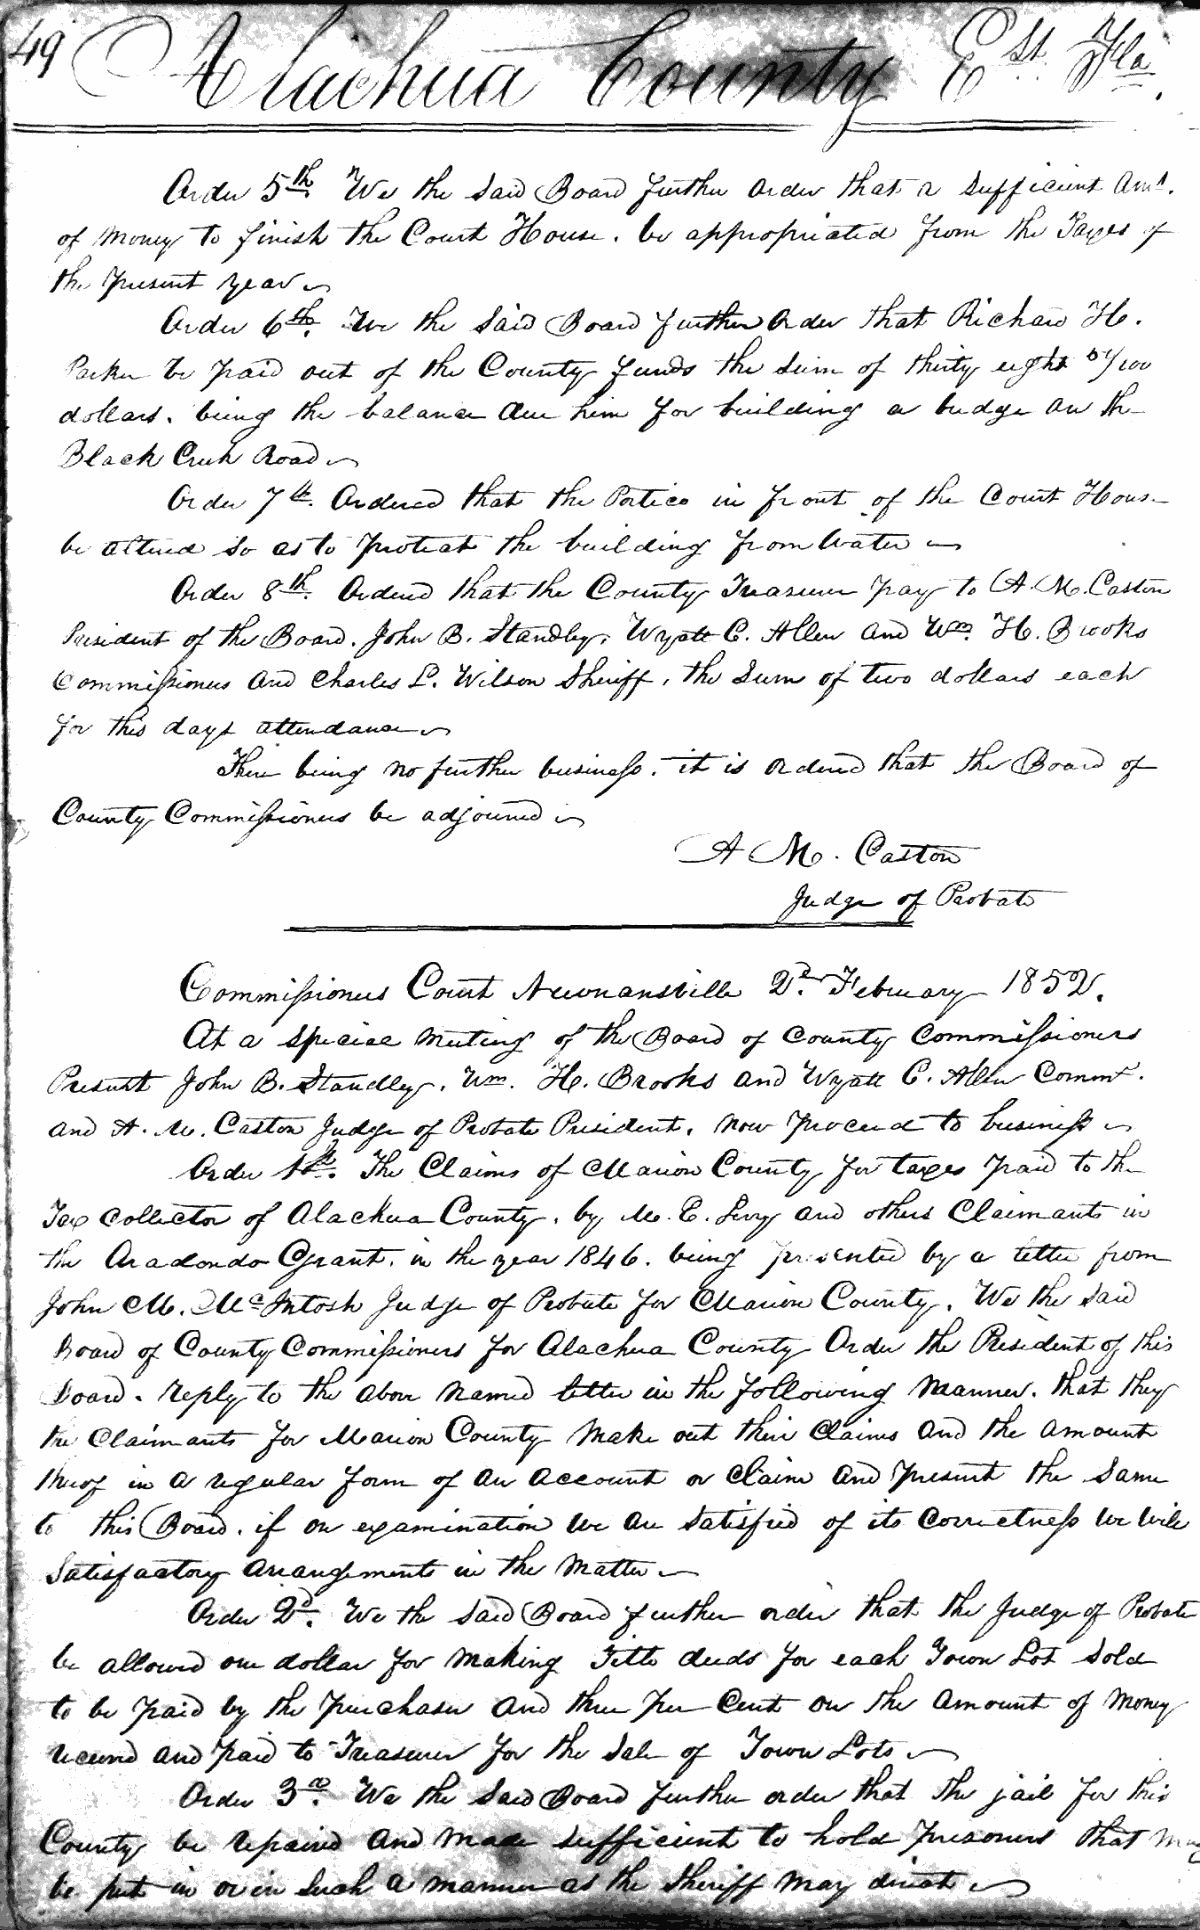 49 Alachua County Est Fla.
Order 5th We the Said Board further order that a sufficient Amt.
of money to finish the Court House. be appropriated from the Taxes of
the present year
Order 6th. We the Said Board further order that Richard H.
Parker be paid out of the County funds the Sum of thirty eight /100
dollars. being the balance due him for building a bridge on the
Black Creek Road
Order 7th. Ordered that the Portico in front of the Court House
be altered so as to protect the building from water
Order 8th. Ordered that the County Treasurer pay to A. M. Caston
President of the Board. John B. Standley, Wyatt C. Allen and Wm. H. Brooks
Commissioners and Charles L. Wilson Sheriff, the Sum of two dollars each
for this days attendance
There being no further business. it is ordered that the Board of
County Commissioners be adjourned
A M. Caston
Judge of Probate
Commissioners Court Newnansville 2d. February 1852.
At a special meeting of the Board of County Commissioners
Present John B. Standley. Wm. H. Brooks and Wyatt C. Allen Commr.
and A. M. Caston Judge of Probate President. now proceed to business
Order 1st. The Claims of Marion County for taxes paid to the
Tax collector of Alachua County. by M. E. Levy and others Claimants in
the Aradondo Grant. in the year 1846. being presented by a letter from
John M. McIntosh Judge of Probate for Marion County. We the Said
Board of County Commissioners for Alachua County Order the President of this
Board. reply to the above named letter in the following manner. that they
the Claimants for Marion County make out their Claims and the amount
thereof in a regular form of an account or claim and present the same
to this Board. if on examination we are satisfied of its correctness we will
satisfactory arrangements in the matter
Order 2d. We the said Board further order that the Judge of Probate
be allowed one dollar for making Title deeds for each Town Lot Sold
to be paid by the purchaser and three per Cent on the amount of money
received and paid to Treasurer for the Sale of Town Lots
Order 3rd. We the said Board further order that the jail for this
County be repaired and made sufficient to hold prisoners that may
be put in or in such a manner as the Sheriff may direct